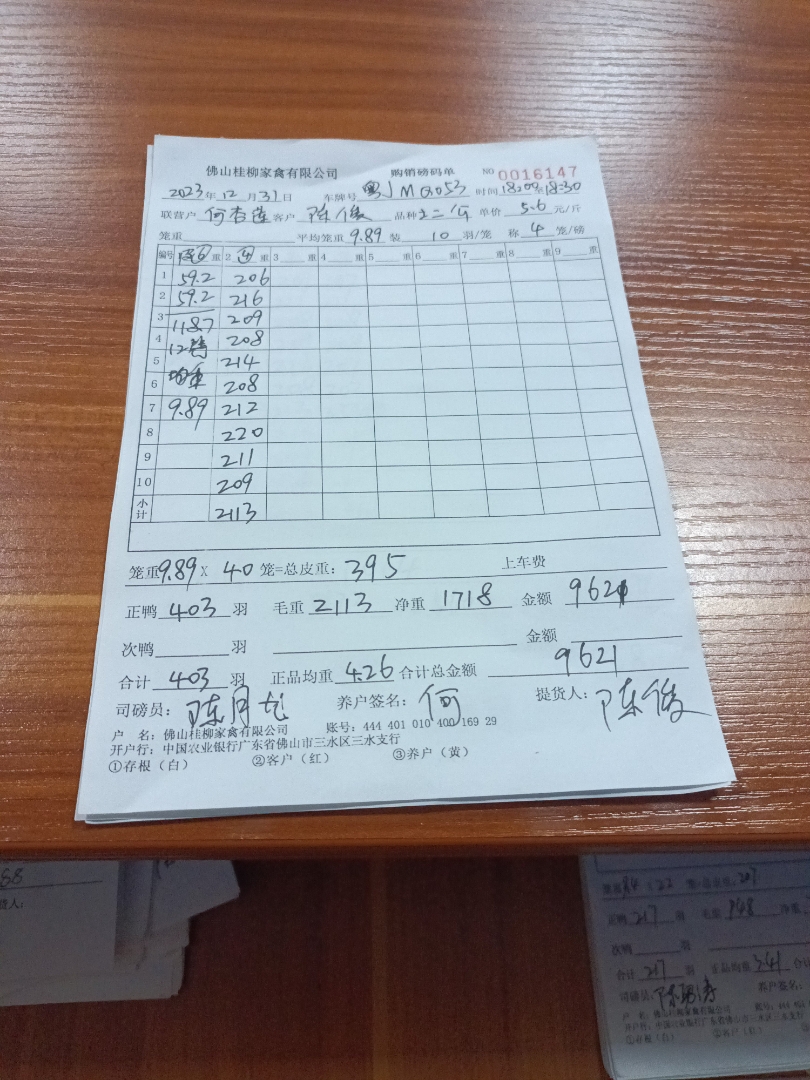 佛山桂柳家禽有限公司 购销磅码单 NO 0016147
2023年12月31日 车牌号 粤JMQ053 时间 18:00至18:30
联营户 何杏莲 客户 陈俊 品种 单价 5.6 元/斤
笼重 平均笼重 9.89 装 10 羽/笼 称 4 笼/磅
编号 重 2 重 3 重 4 重 5 重 6 重 7 重 8 重 9 重
1 59.2 206
2 59.2 216
3 118.7 209
4 12 208
5 均重 214
6 208
7 9.89 212
8 220
9 211
10 209
小计 2113
笼重9.89 X 40 笼=总皮重：395 上车费
正鸭 403 羽 毛重 2113 净重 1718 金额 9621
次鸭 羽 金额
合计 403 羽 正品均重 4.26 合计总金额 9621
司磅员： 陈月 养户签名： 何 提货人： 陈俊
户 名：佛山桂柳家禽有限公司 账号：444 401 010 400 169 29
开户行：中国农业银行广东省佛山市三水区三水支行
①存根（白） ②客户（红） ③养户（黄）
88
货人：
笼重 8.4 X 22 207
正鸭 217 羽 毛重 948 净重
次鸭 羽
合计 217 羽 正品均重 3.41 合计
司磅员： 陈 养户签名：
户 名：佛山桂柳家禽有限公司 账号：444 401
开户行：中国农业银行广东省佛山市三水区三水支行
①存根（白） ②客户（红）